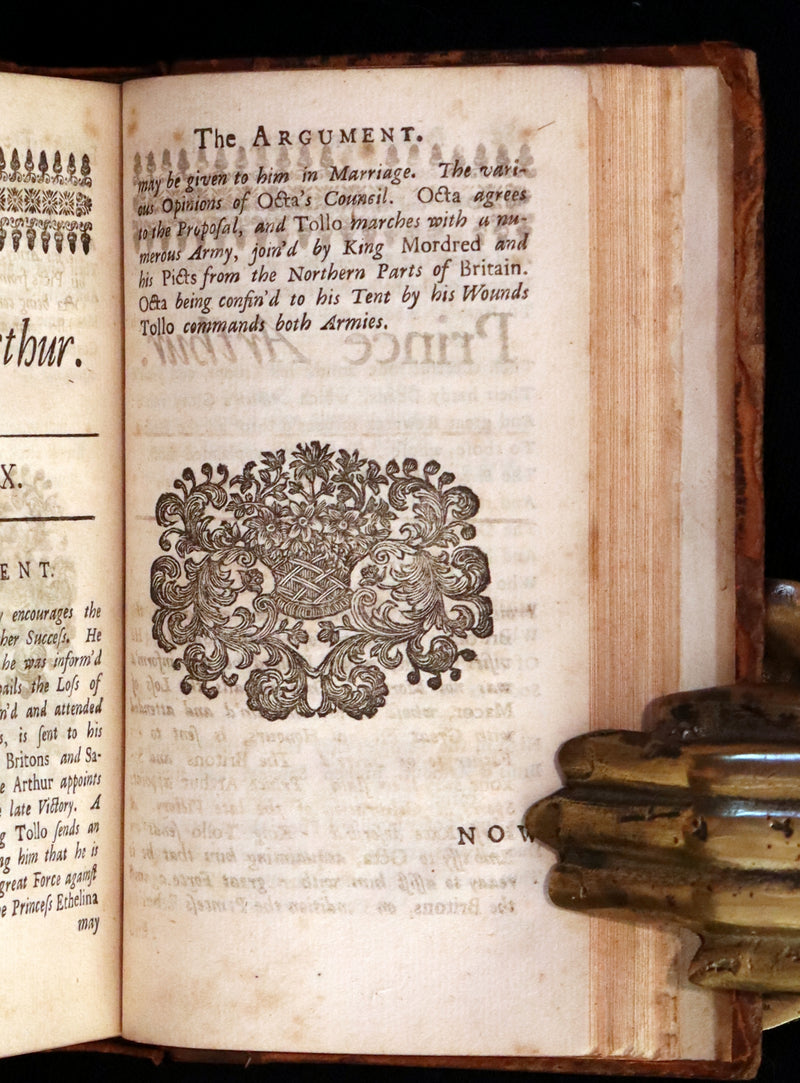 thur.
X.
ENT.
encourages the
her Succeſs. He
he was inform'd
the Loſs of
and attended
is ſent to his
Britons and Sa-
Arthur appoints
late Victory. A
Tollo ſends an
him that he is
great Force againſt
Princeſs Ethelina
may
The ARGUMENT.
may be given to him in Marriage. The vari-
ous Opinions of Octa's Council. Octa agrees
to the Propoſal, and Tollo marches with a nu-
merous Army, join'd by King Mordred and
his Picts from the Northern Parts of Britain.
Octa being confin'd to his Tent by his Wounds
Tollo commands both Armies.
NOW